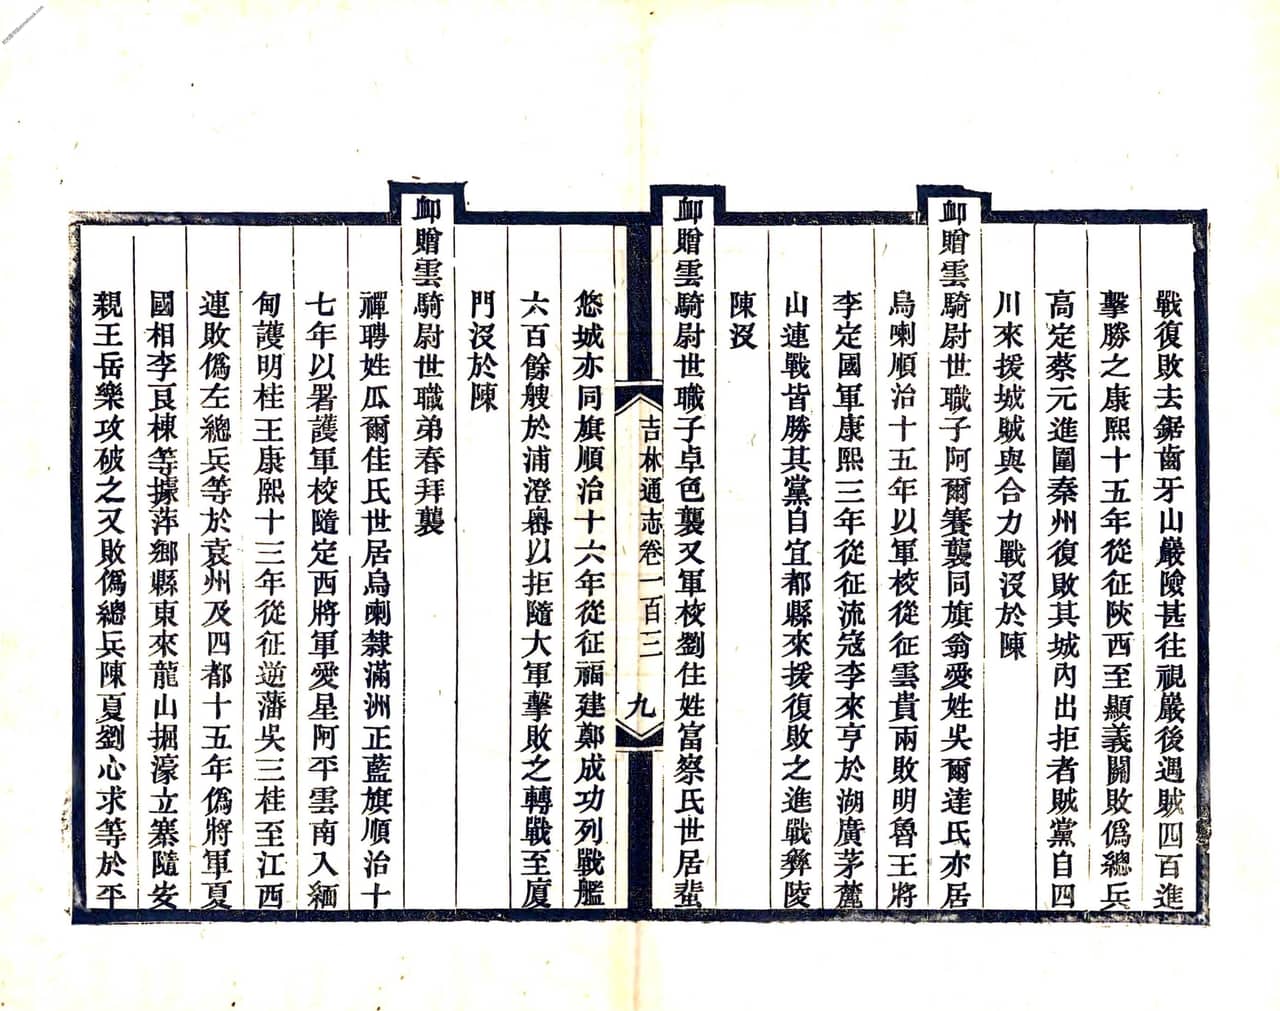 戰復敗去鋸齒牙山巖險甚往視嚴後遇賊四百進
擊勝之康熙十五年從征陝西至顯義關敗僞總兵
高定蔡元進圍秦州復敗其城內出拒者賊黨自四
川來援城賊與合力戰沒於陳
卹贈雲騎尉世職子阿爾賽襲同旗翁愛姓吳爾達氏亦居
烏喇順治十五年以軍校從征雲貴兩敗明魯王將
李定國軍康熙三年從征流寇李來亨於湖廣茅麓
山連戰皆勝其黨自宜都縣來援復敗之進戰彝陵
陳沒
卹贈雲騎尉世職子卓色襲又軍校劉住姓富察氏世居蜚
吉林通志卷一百三 九
悠城亦同旗順治十六年從征福建鄭成功列戰艦
六百餘艘於浦澄粵以拒隨大軍擊敗之轉戰至廈
門沒於陳
卹贈雲騎尉世職弟春拜襲
禪聘姓瓜爾佳氏世居烏喇隸滿洲正藍旗順治十
七年以署護軍校隨定西將軍愛星阿平雲南入緬
甸護明桂王康熙十三年從征逆藩吳三桂至江西
連敗僞左總兵等於袁州及四都十五年僞將軍夏
國相李良棟等據萍鄉縣東來龍山掘濠立寨隨安
親王岳樂攻破之又敗僞總兵陳夏劉心求等於平